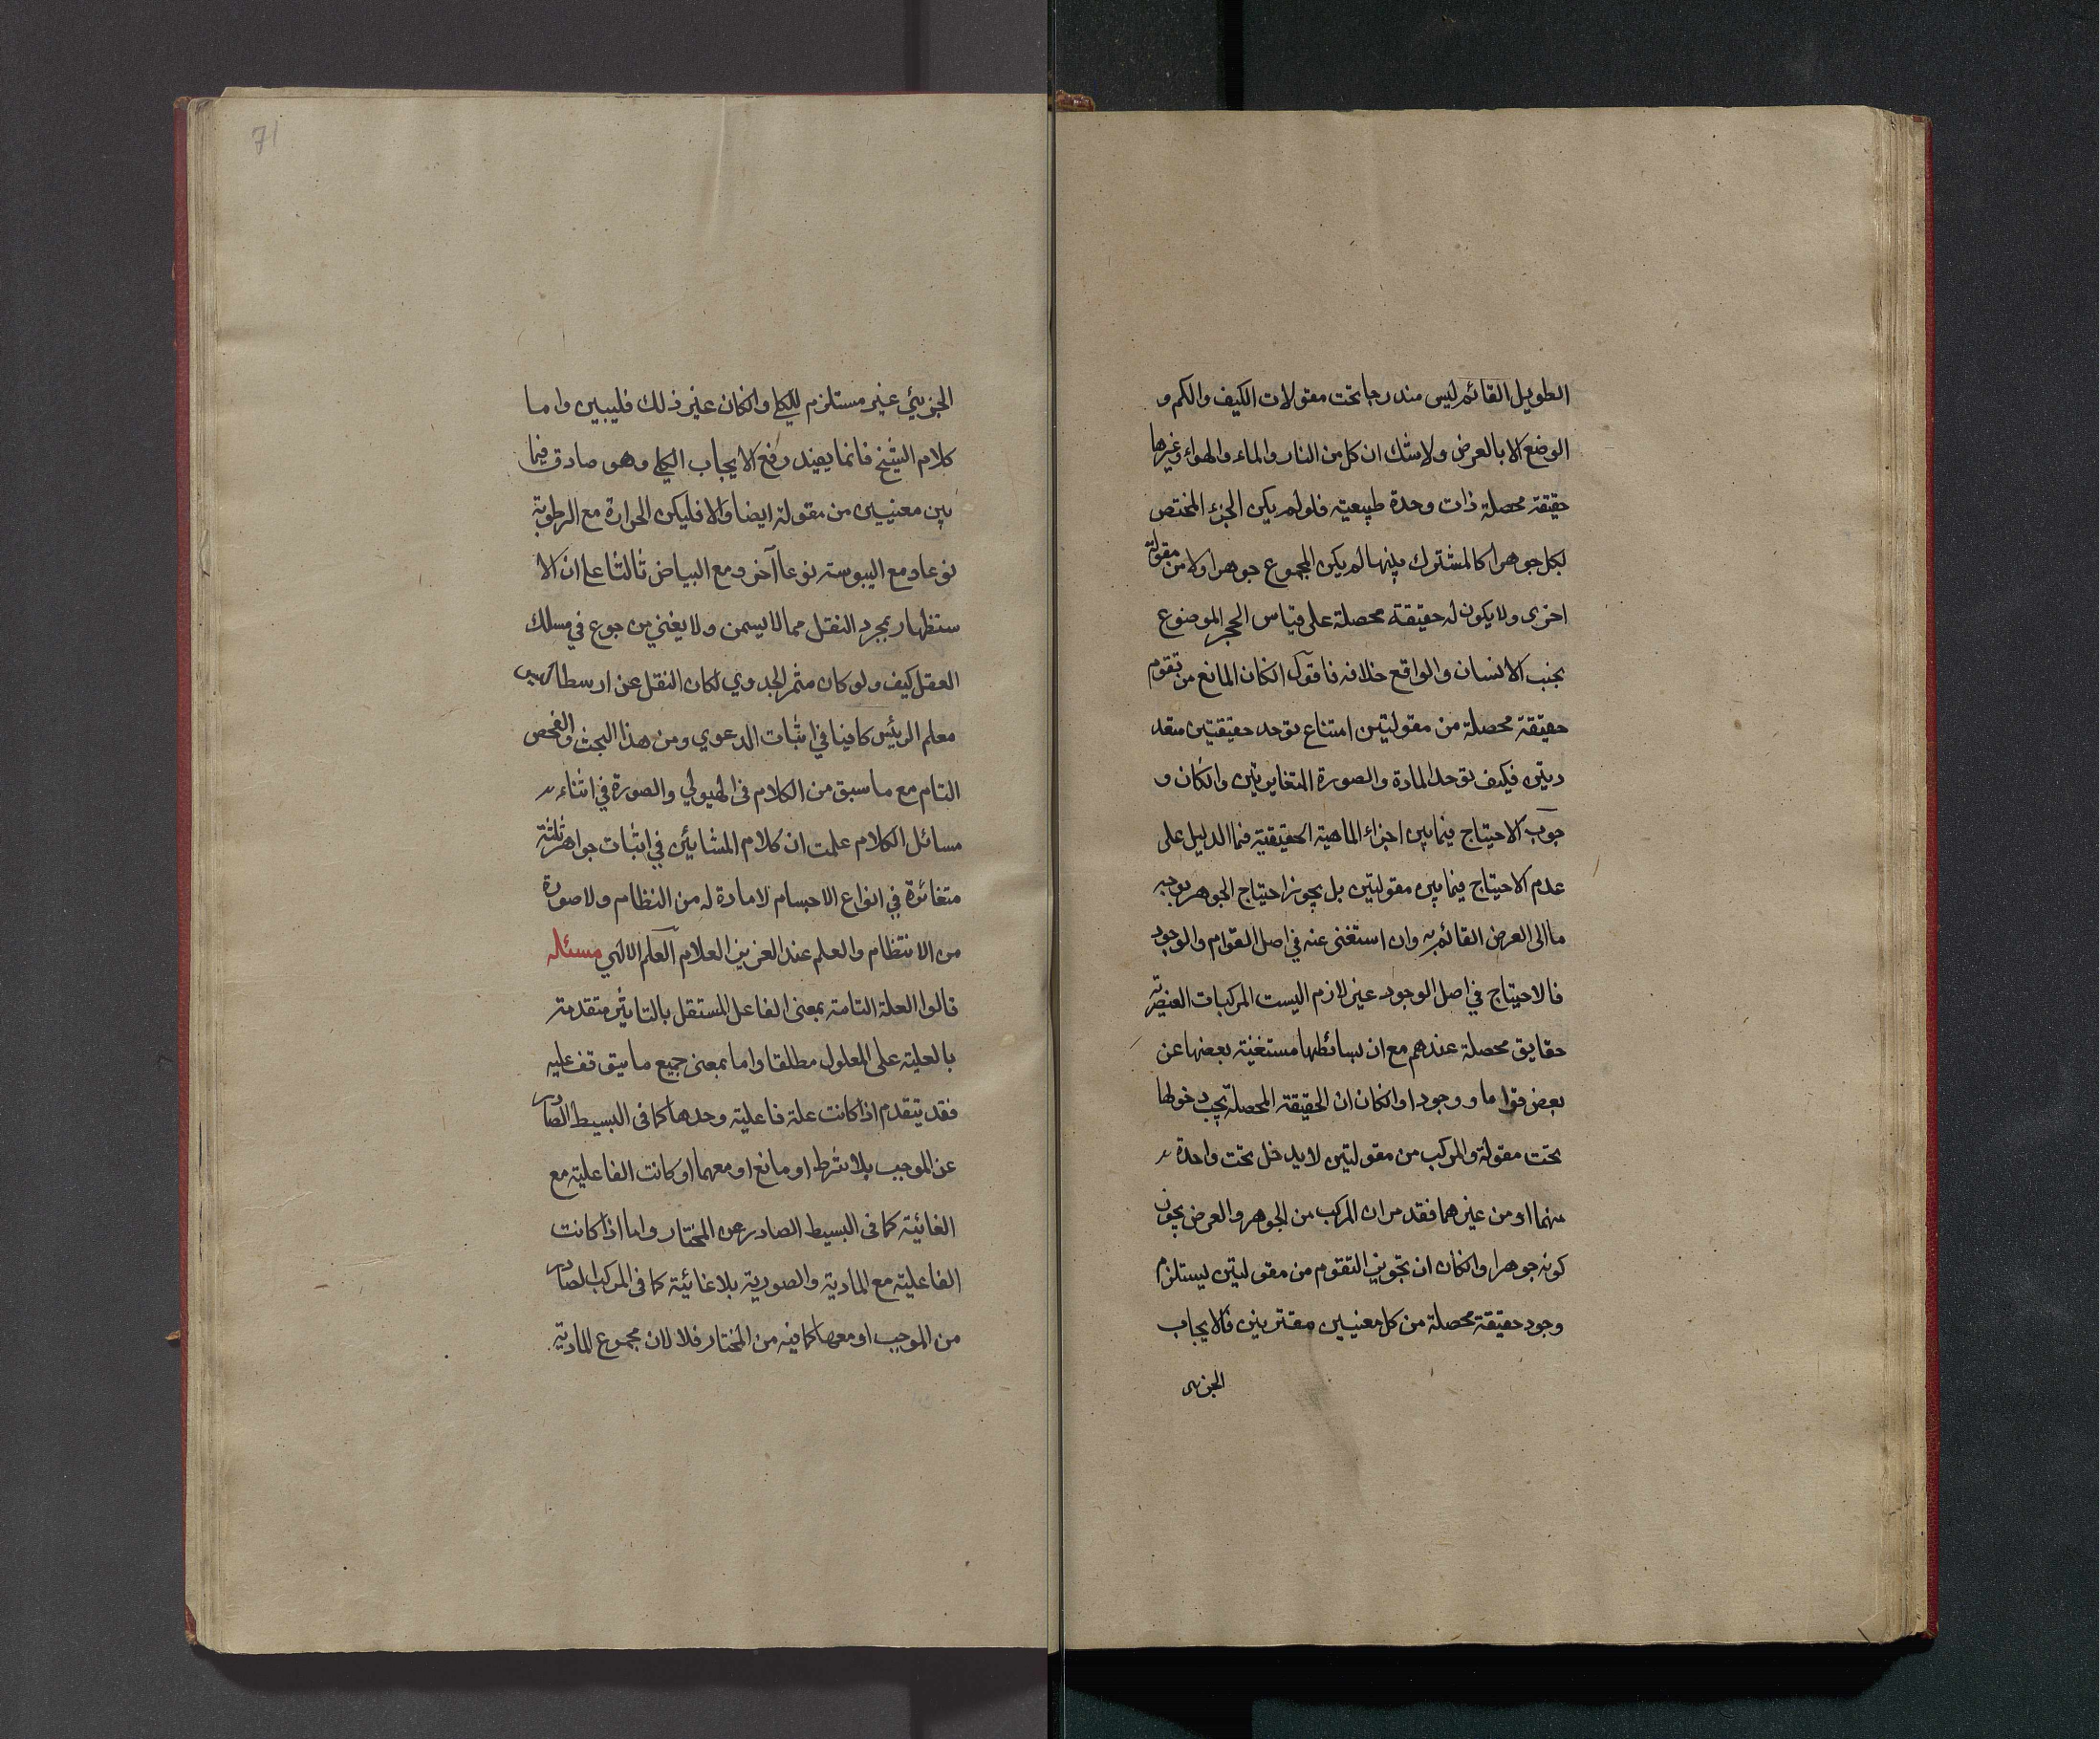 الطويل القائم ليس مندرجا تحت مقولات الكيف والكم و
الوضع الا بالعرض ولا شك ان كل من النار والماء والهواء وغيرها
حقيقة محصلة ذات وحدة طبيعية فلو لم يكن الجزء المختص
بكل جوهرا كالمشترك بينها لم يكن المجموع جوهرا ولا من مقولة
اخرى ولا يكون له حقيقة محصلة على قياس الحجر الموضوع
بجنب الانسان والواقع خلافه فاقول انكان المانع من تقوم
حقيقة محصلة من مقولتين امتناع توحد حقيقتين متعد
دتين فكيف توحد المادة والصورة المتغايرتين وانكان و
جوب الاحتياج فيما بين اجزاء الماهية الحقيقية فما الدليل على
عدم الاحتياج فيما بين مقولتين بل يجوز احتياج الجوهر بوجه
ما الى العرض القائم به وان استغنى عنه في اصل القوام والوجود
فالاحتياج في اصل الوجود غير لازم اليست المركبات العنصرية
حقايق محصلة عندهم مع ان بسائطها مستغنية بعضها عن
بعض قواما ووجودا وانكان ان الحقيقة المحصلة يجب دخولها
تحت مقولة والمركب من مقولتين لا يدخل تحت واحدة
منهما او من غيرهما فقد مر ان المركب من الجوهر والعرض يجوز
كونه جوهرا وانكان ان تجويز التقوم من مقولتين يستلزم
وجود حقيقة محصلة من كل معنيين مقترنين فالايجاب
الجزئي
71
الجزيئي غير مستلزم للكلي وانكان غير ذلك فليبين واما
كلام الشيخ فانما يفيد رفع الايجاب الكلي وهو صادق فيما
بين معنيين من مقولة ايضا والا فليكن الحرارة مع الرطوبة
نوعا ومع اليبوسة نوعا آخر ومع البياض ثالثا على ان الا
ستظهار بمجرد النقل مما لا يسمن ولا يغني من جوع في مسلك
العقل كيف ولو كان مثمر الجدوي لكان النقل عن ارسطاطاليس
معلم الرئيس كافيا في اثبات الدعوي ومن هذا البحث والفحص
التام مع ما سبق من الكلام في الهيولي والصورة في اثناء
مسائل الكلام علمت ان كلام المشائين في اثبات جواهر ثلثة
متغائرة في انواع الاجسام لا مادة له من النظام ولا صورة
من الانتظام والعلم عند العزيز العلام العلم الالهي مسئله
قالوا العلة التامة بمعنى الفاعل المستقل بالتاثير متقدمة
بالعلية على المعلول مطلقا واما بمعنى جميع ما يتوقف عليه
فقد يتقدم اذا كانت علة فاعلية وحدها كما في البسيط الصادر
عن الموجب بلا شرط او مانع او معهما او كانت الفاعلية مع
الغائية كما في البسيط الصادر عن المختار واما اذا كانت
الفاعلية مع المادية والصورية بلا غائية كما في المركب الصادر
من الموجب او معها كما فيه من المختار فلا لان مجموع المادية